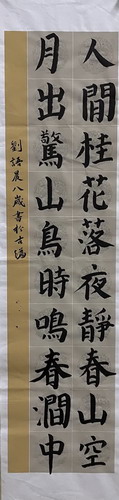 人閒桂花落夜靜春山空
月出驚山鳥時鳴春澗中
劉語晨八歲書於古瀛